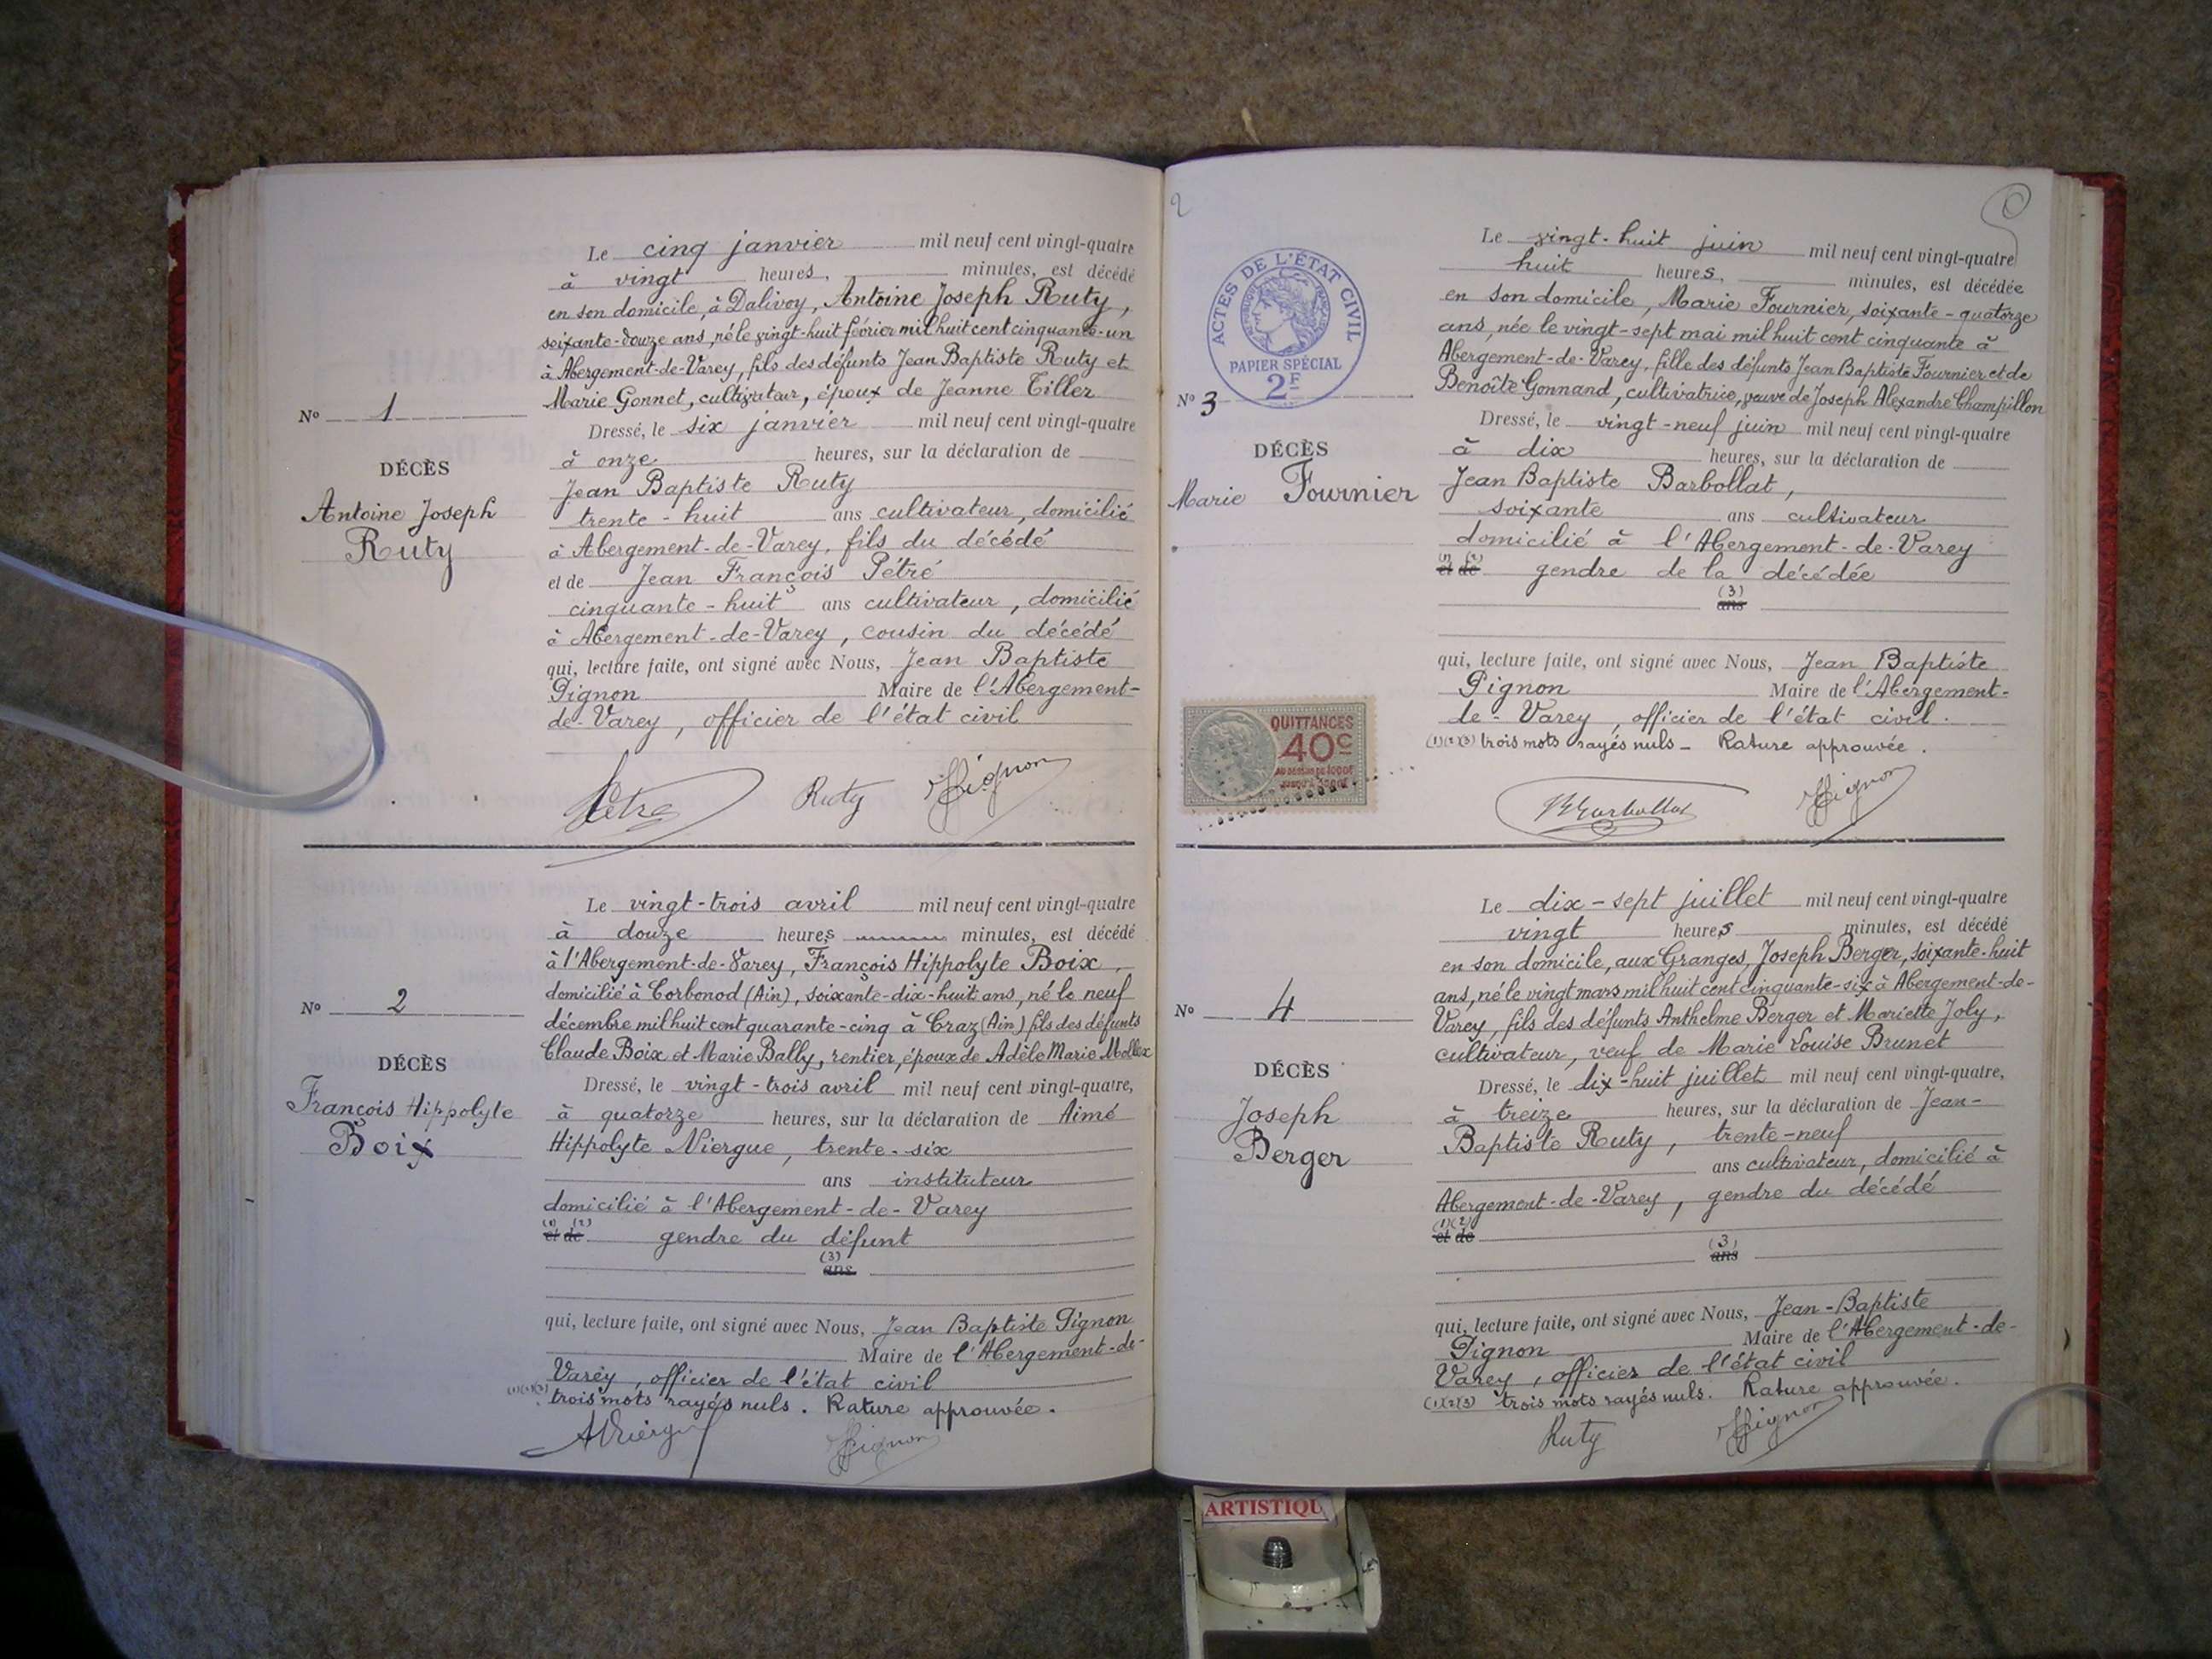 Le cinq janvier mil neuf cent vingt-quatre
à vingt heures, minutes, est décédé
en son domicile, à Dalivoy, Antoine Joseph Ruty,
soixante-douze ans, né le vingt-huit février mil huit cent cinquante-un
à Abergement-de-Varey, fils des défunts Jean Baptiste Ruty et
Marie Gonnet, cultivateur, époux de Jeanne Tiller
No 1
Dressé, le six janvier mil neuf cent vingt-quatre
à onze heures, sur la déclaration de
DÉCÈS
Jean Baptiste Ruty
Antoine Joseph
Ruty
trente-huit ans cultivateur, domicilié
à Abergement-de-Varey, fils du décédé
et de Jean François Pétré
cinquante-huit ans cultivateur, domicilié
à Abergement-de-Varey, cousin du décédé
qui, lecture faite, ont signé avec Nous, Jean Baptiste
Pignon Maire de l'Abergement-
de-Varey, officier de l'état civil
Petre Ruty Pignon
Le vingt-trois avril mil neuf cent vingt-quatre
à douze heures minutes, est décédé
à l'Abergement-de-Varey, François Hippolyte Boix,
domicilié à Corbonod (Ain), soixante-dix-huit ans, né le neuf
No 2
décembre mil huit cent quarante-cinq à Craz (Ain) fils des défunts
Claude Boix et Marie Bally, rentier, époux de Adèle Marie Mollex
DÉCÈS
François Hippolyte
Boix
Dressé, le vingt-trois avril mil neuf cent vingt-quatre,
à quatorze heures, sur la déclaration de Aimé
Hippolyte Niergue, trente-six
ans instituteur
domicilié à l'Abergement-de-Varey
(1) (2)
et de gendre du défunt
(3)
ans
qui, lecture faite, ont signé avec Nous, Jean Baptiste Pignon
Maire de l'Abergement-de-
Varey, officier de l'état civil
(1)(2)(3) trois mots rayés nuls. Rature approuvée.
Pignon
2
ACTES DE L'ÉTAT CIVIL
RÉPUBLIQUE FRANÇAISE
PAPIER SPÉCIAL
2F
Le vingt-huit juin mil neuf cent vingt-quatre
huit heures, minutes, est décédée
en son domicile, Marie Fournier, soixante-quatorze
ans, née le vingt-sept mai mil huit cent cinquante à
Abergement-de-Varey, fille des défunts Jean Baptiste Fournier et de
Benoîte Gonnand, cultivatrice, veuve de Joseph Alexandre Champillon
No 3
DÉCÈS
Marie Fournier
Dressé, le vingt-neuf juin mil neuf cent vingt-quatre
à dix heures, sur la déclaration de
Jean Baptiste Barbollat,
soixante ans cultivateur
domicilié à l'Abergement-de-Varey
(1) (2)
et de gendre de la décédée
(3)
ans
qui, lecture faite, ont signé avec Nous, Jean Baptiste
Pignon Maire de l'Abergement-
de-Varey, officier de l'état civil.
(1)(2)(3) trois mots rayés nuls - Rature approuvée.
QUITTANCES
40c
Barbollat Pignon
Le dix-sept juillet mil neuf cent vingt-quatre
vingt heures minutes, est décédé
en son domicile, aux Granges, Joseph Berger, soixante-huit
ans, né le vingt mars mil huit cent cinquante-six à Abergement-de-
Varey, fils des défunts Anthelme Berger et Mariette Joly,
cultivateur, veuf de Marie Louise Brunet
No 4
DÉCÈS
Joseph
Berger
Dressé, le dix-huit juillet mil neuf cent vingt-quatre,
à treize heures, sur la déclaration de Jean-
Baptiste Ruty, trente-neuf
ans cultivateur, domicilié à
Abergement-de-Varey, gendre du décédé
(1) (2)
et de
(3)
ans
qui, lecture faite, ont signé avec Nous, Jean-Baptiste
Pignon Maire de l'Abergement-de-
Varey, officier de l'état civil
(1)(2)(3) trois mots rayés nuls. Rature approuvée.
Ruty Pignon
ARTISTIQU